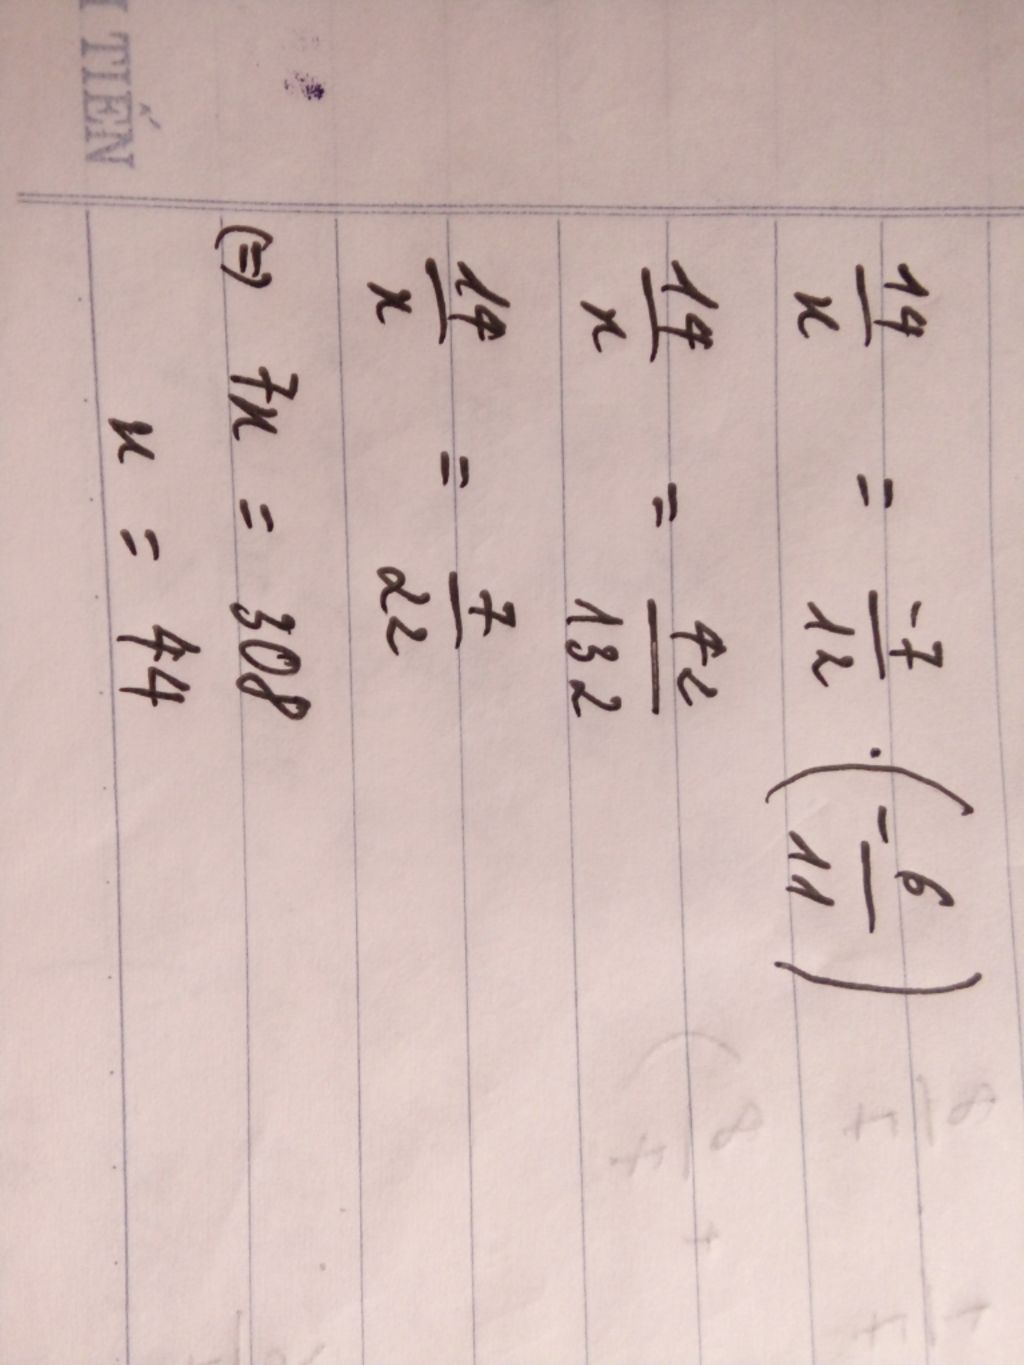 TIẾN
14/x = -7/12 . (-6/11)
14/x = 42/132
14/x = 7/22
(=) 7x = 308
x = 44